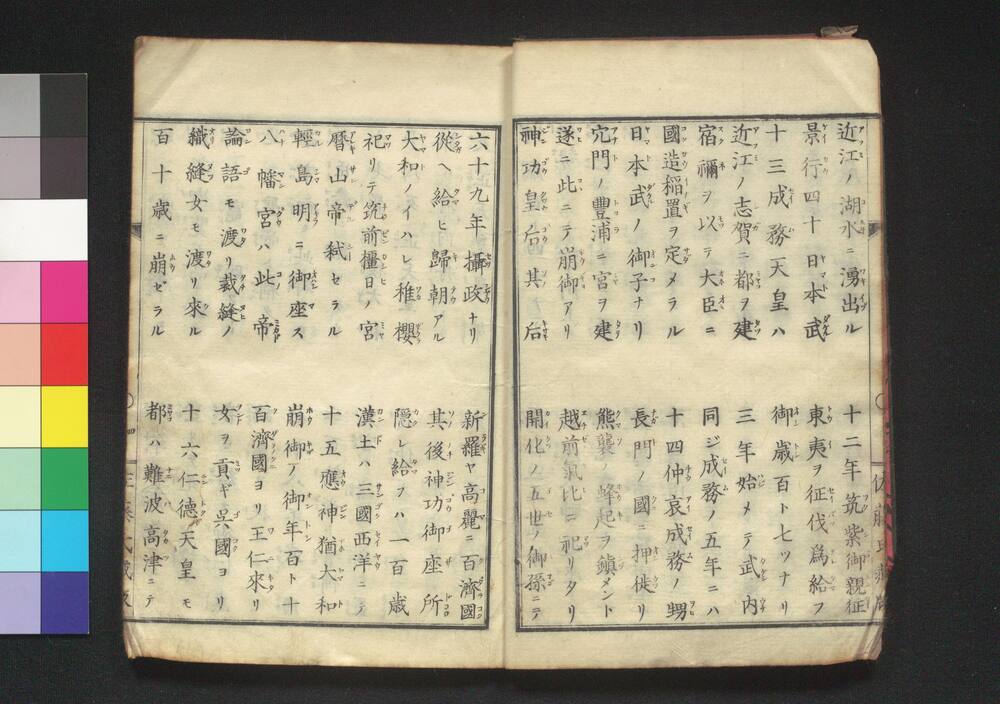 近江ノ湖水ニ湧出ル
十二年筑紫御親征
景行四十日本武
東夷ヲ征伐爲給フ
十三成務天皇ハ
御歳百ト七ツナリ
近江ノ志賀ニ都ヲ建
三年始メテ武内
宿禰ヲ以テ大臣ニ
同ジ成務ノ五年ニハ
國造稲置ヲ定メラル
十四仲哀成務ノ甥
日本武ノ御子ナリ
長門ノ國ニ押徙リ
穴門ノ豊浦ニ宮ヲ建
熊襲ノ蜂起ヲ鎮メント
遂ニ此ニテ崩御アリ
越前氣比ニ祀リタリ
神功皇后其ノ后
開化ノ五世ノ御孫ニテ
六十九年攝政ナリ
新羅ヤ高麗ニ百濟國
從ヘ給ヒ歸朝アル
其後神功御座所
大和ノイハレ稚櫻
隠レ給フハ一百歳
祀リテ筑前橿日ノ宮
漢土ハ三國西洋ニテ
暦山帝弑セラル
十五應神猶大和
輕島明ニ御座ス
崩御ノ御年百ト十
八幡宮ハ此帝
百濟國ヨリ王仁來リ
論語モ渡リ裁縫ノ
女ヲ貢ギ呉國ヨリ
織縫女モ渡リ來ル
十六仁德天皇モ
百十歳ニ崩ゼラル
都ハ難波高津ニテ